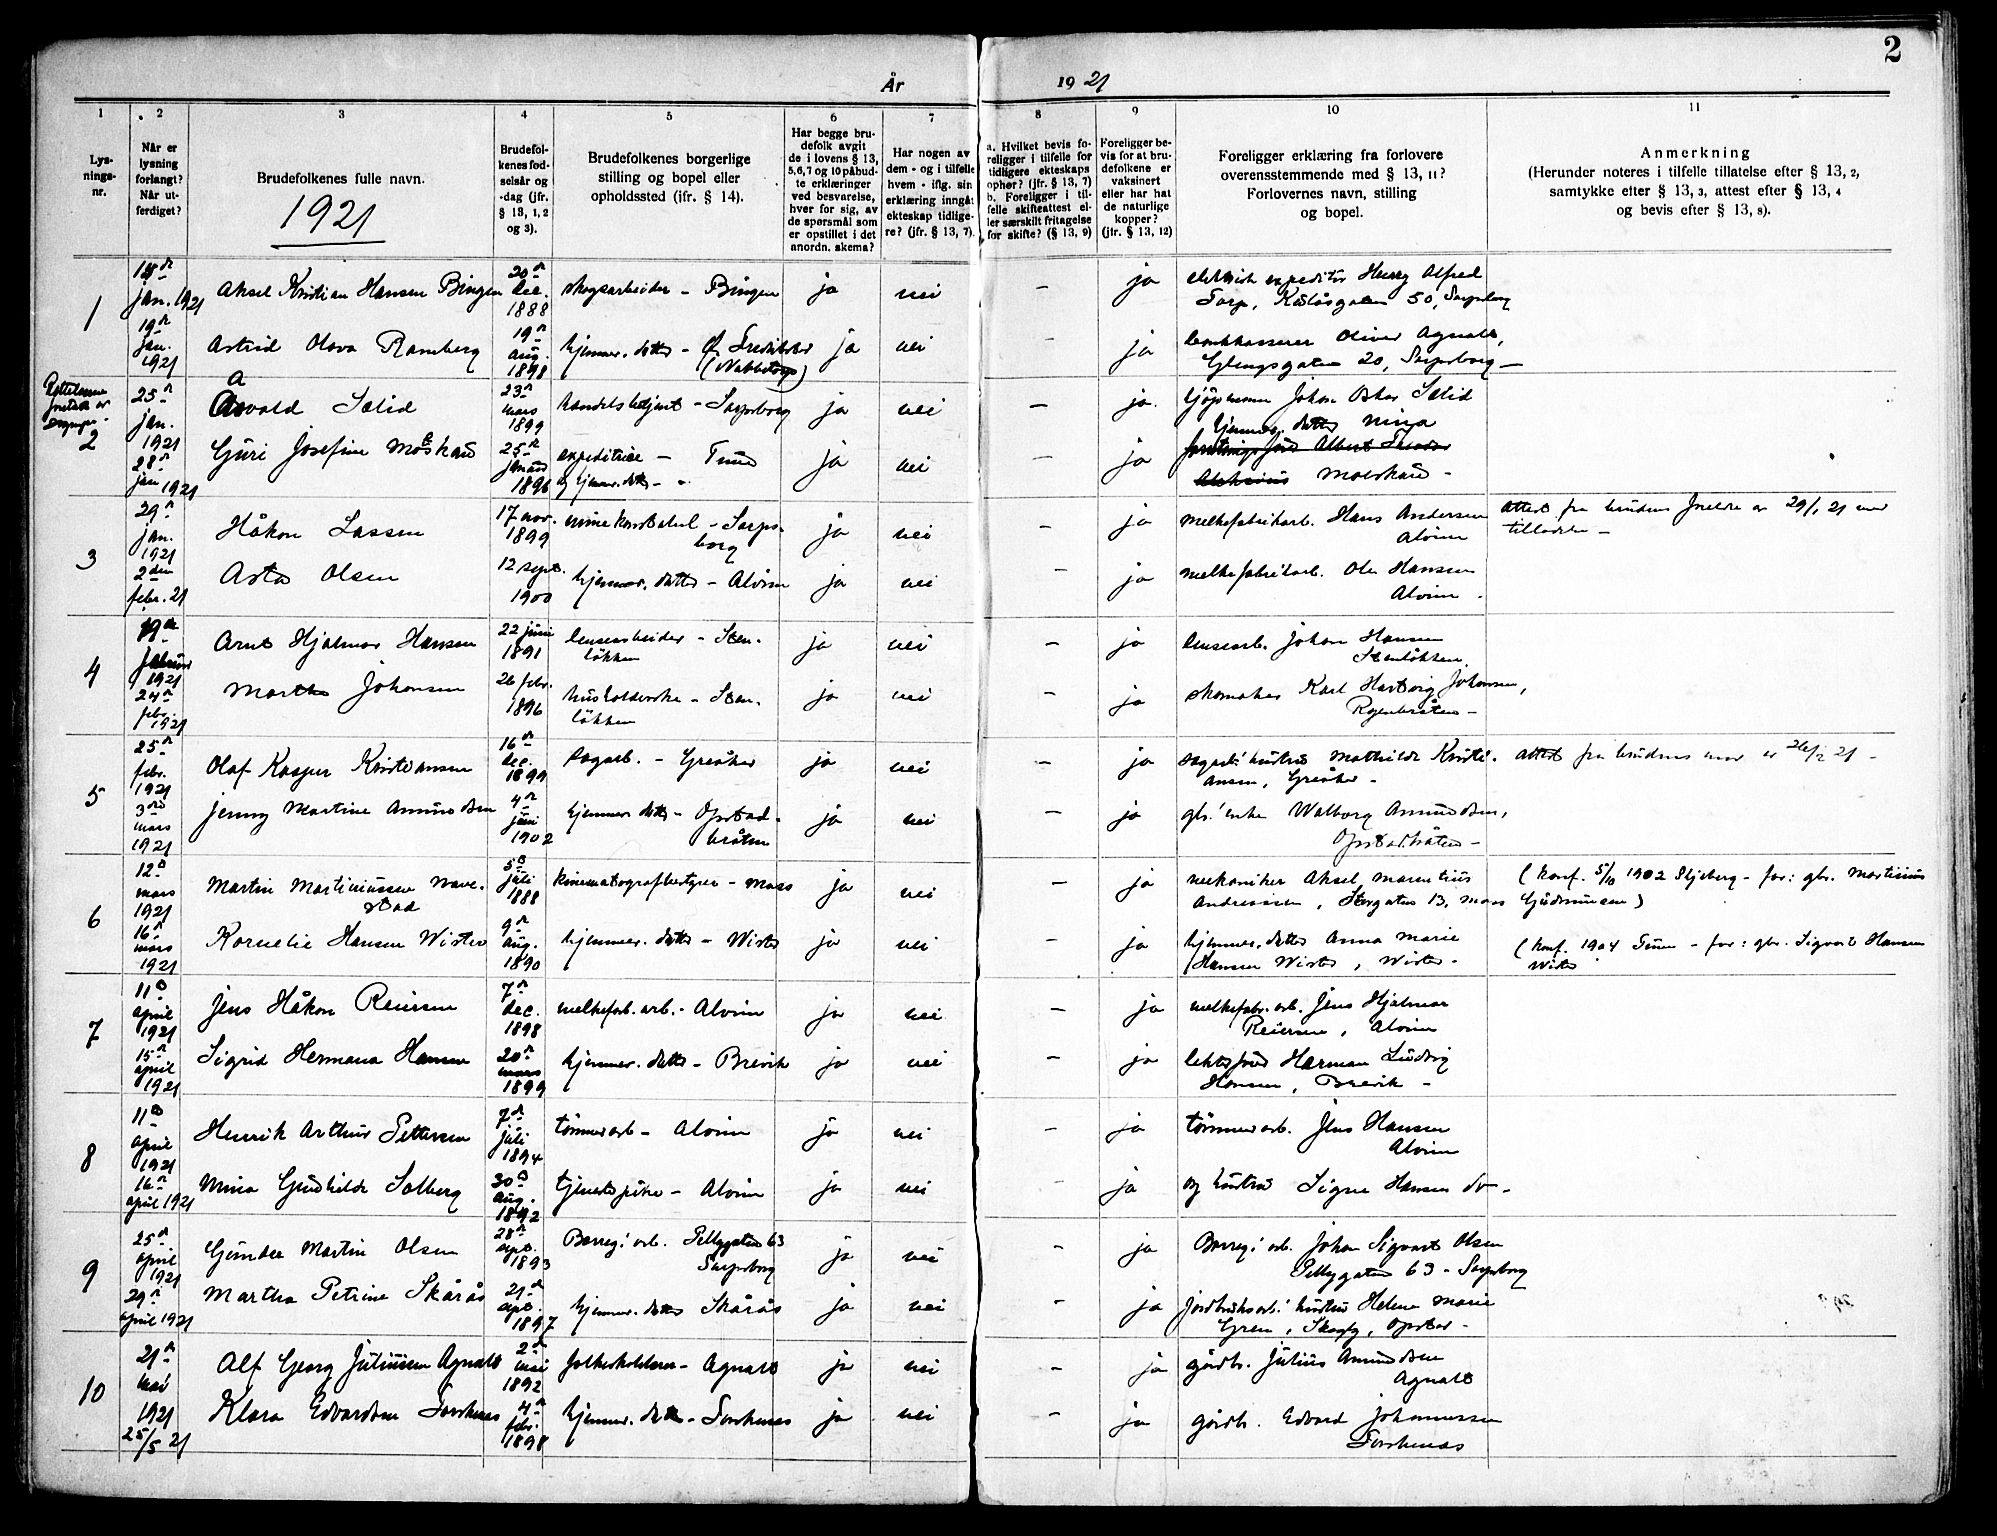 2
År 1921
1
Lys-
nings-
nr.
2
Når er
lysning
forlangt?
Når ut-
ferdiget?
3
Brudefolkenes fulle navn.
1921
4
Brudefol-
kenes fød-
selsår og
-dag (jfr.
§ 13, 1, 2
og 3).
5
Brudefolkenes borgerlige
stilling og bopel eller
opholdssted (ifr. § 14).
6
Har begge bru-
defolk avgit
de i lovens § 13,
5, 6, 7 og 10 påbud-
te erklæringer
ved besvarelse,
hver for sig, av
de spørsmål som
er opstillet i det
anordn. skema?
7
Har nogen av
dem - og i tilfelle
hvem - iflg. sin
erklæring inngåt
ekteskap tidlige-
re? (jfr. § 13, 7).
8
a. Hvilket bevis fo-
religger i tilfelle for
tidligere ekteskaps
ophør? (jfr. § 13, 7)
b. Foreligger i til-
felle skifteattest el-
ler særskilt fritagelse
for skifte? (§ 13, 9)
9
Foreligger be-
vis for at bru-
defolkene er
vaksinert
eller har hat
de naturlige
kopper?
(jfr. § 13, 12)
10
Foreligger erklæring fra forlovere
overensstemmende med § 13, 11?
Forlovernes navn, stilling
og bopel.
11
Anmerkning
(Herunder noteres i tilfelle tillatelse efter § 13, 2,
samtykke efter § 13, 3, attest efter § 13, 4
og bevis efter § 13, 8).
1
jan. 1921
Aksel Kristian Hansen Bingen
20de
dec.
1888
skogsarbeider - Bingen
ja
nei
-
ja
Henry Alfred
Torp, 50, Sarpsborg
19de
jan.
1921
Astrid Olava Ramberg
19de
aug.
1898
hjemmev. datter -
ja
nei
ja
bankkasserer Oliver Agnalt,
Glengsgaten 20, Sarpsborg -
2
25de
jan.
1921
Asvald Solid
23de
mars
1899
handelsbetjent - Sarpsborg
ja
nei
-
ja
Johan Oskar Solid
28de
jan 1921
Guri Josefine
25de
januar
1896
expeditrise - Tune
og hjemmev. datter - "
ja
nei
-
ja
hjemmev. datter Nina
Albert
3
29de
jan.
1921
Håkon Lassen
17 nov.
1899
konstabel - Sarps-
borg
ja
nei
-
ja
melkefabrikarb. Hans Andersen
Alvim
attest fra brudens foreldre av 29/1 21 med
tilladelse -
2den
febr. 21
Asta Olsen
12 sept.
1900
hjemmev. datter - Alvim
ja
nei
-
ja
melkefabrikarb. Ole Hansen
Alvim
4
19de
februar
1921
Arnt Hjalmar Hansen
22 juni
1891
lensearbeider - Sten-
løkken
ja
nei
-
ja
lensearb. Johan Hansen
Stenløkken
24de
febr.
1921
Martha Johansen
26 febr.
1896
husholderske - Sten-
løkken
ja
nei
-
ja
skomaker Karl Hartvig Johansen,
5
25de
febr.
1921
Olaf Kasper Kristiansen
16de
dec.
1899
sagarb. - Greåker
ja
nei
-
ja
sagarb! hustru Mathilde Kristi-
ansen, Greåker -
attest fra brudens mor av 26/2 21 -
3de
mars
1921
Jenny Martine Amundsen
4de
juni
1902
hjemmev datter - Opstad-
bråten
ja
nei
-
ja
gbr! enke Walborg Amundsen,
Opstadbråten -
6
12te
mars
1921
Martin Martiniussen Nave-
stad
5te
juli
1888
kinematografbestyrer - Moss
ja
nei
-
ja
mekaniker Aksel
Andreassen, 13, Moss
(konf. 5/10 1902 Skjeberg - far: gbr. Martinius
Gudmunsen)
16de
mars
1921
Kornelie Hansen Wister
9de
aug.
1890
hjemmev. datter - Wister
ja
nei
-
ja
hjemmev. datter Anna Marie
Hansen Wister, Wister -
(konf. 1904 Tune - far: gbr. Sigvart Hansen
Wister
7
11te
april
1921
Jens Håkon Reiersen
7de
dec.
1898
melkefab. arb. - Alvim
ja
nei
-
ja
melkefabr. arb. Jens Hjalmar
Reiersen, Alvim
15de
april
1921
Sigrid Hermana Hansen
20de
mars
1899
hjemmev. datter - Brevik
ja
nei
-
ja
Herman Ludvig
Hansen, Brevik -
8
11te
april
1921
Henrik Arthur Pettersen
7de
juli
1894
tømmerarb - Alvim
ja
nei
-
ja
tømmerarb. Jens Hansen
Alvim
16de
april 1921
Mina Gunhilde Solberg
30te
aug.
1892
tjenestepike - Alvim
ja
nei
-
ja
og hustru Signe Hansen do -
9
25de
april
1921
Gunder Martin Olsen
28de
sept.
1893
Borreg! arb. Pellygaten 63
Sarpsborg
ja
nei
-
ja
Borreg! arb. Johan Sigvart Olsen
Pellygaten 63 - Sarpsborg
29de
april 1921
Martha Petrine Skårås
21de
sept.
1897
hjemmev. datter Skårås
ja
nei
-
ja
jordbruksarb! hustru Helene Marie
Gren, Opstad -
10
21de
mai
1921
Alf Georg Juliussen Agnalt
2de
mai
1892
Agnalt
ja
nei
-
ja
gårdbr. Julius Amundsen
Agnalt
25/5 21
Klara Edvardsen Torskenes
4de
febr.
1898
hjemmev. datter - Torskenes
ja
nei
-
ja
gårdbr. Edvard Johannessen
Torskenes